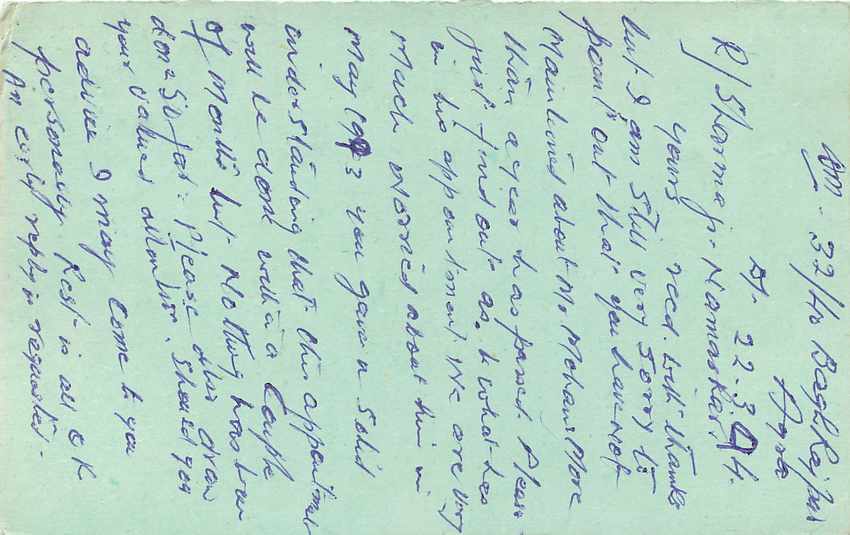 32/40 Bagh Rajpur
Agra
Dt. 22.3.94.
R/Sharmaji - Namaskar.
Yours recd. with thanks
but I am still very sorry to
point out that you have not
mentioned about Mohan. More
than a year has passed. Please
just find out as to what has
in his appointment. We are very
much worried about him in
May 1993 you gave a solid
understanding that this appointment
will be done within a couple
of months but nothing has been
done so far. Please also draw
your valued attention. Should you
advise I may come to you
personally. Rest is all OK
An early reply is requested.